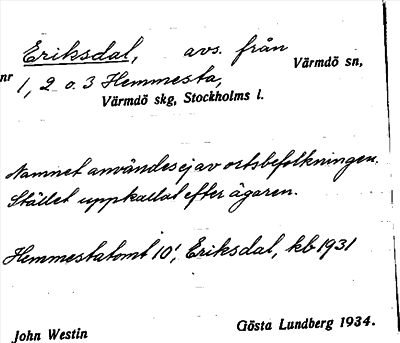 Eriksdal, avs. från Värmdö sn,
nr 1, 2 o. 3 Hemmesta,
Värmdö skg, Stockholms l.
Namnet användes ej av ortsbefolkningen.
Stället uppkallat efter ägaren.
Hemmestatomt 10¹, Eriksdal, kb 1931
John Westin Gösta Lundberg 1934.